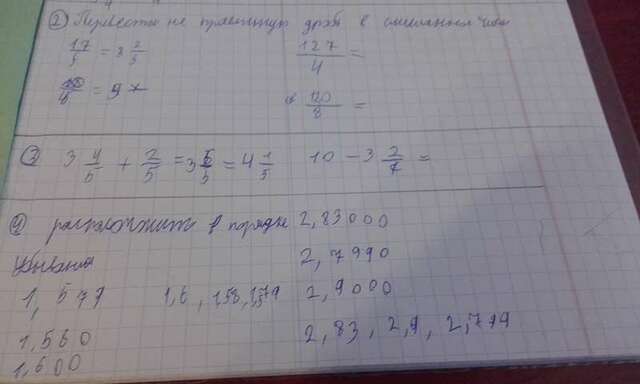 ② Перевести не правильную дробь в смешанное число
17/5 = 3 2/5 127/4 =
/8 = 9 120/8 =
③ 3 4/5 + 2/5 = 3 6/5 = 4 1/5 10 - 3 2/7 =
④ расположить в порядке 2,83000
убывания 2,7990
1,579 1,6, 1,58, 1,579 2,9000
1,560 2,83, 2,9, 2,799
1,600